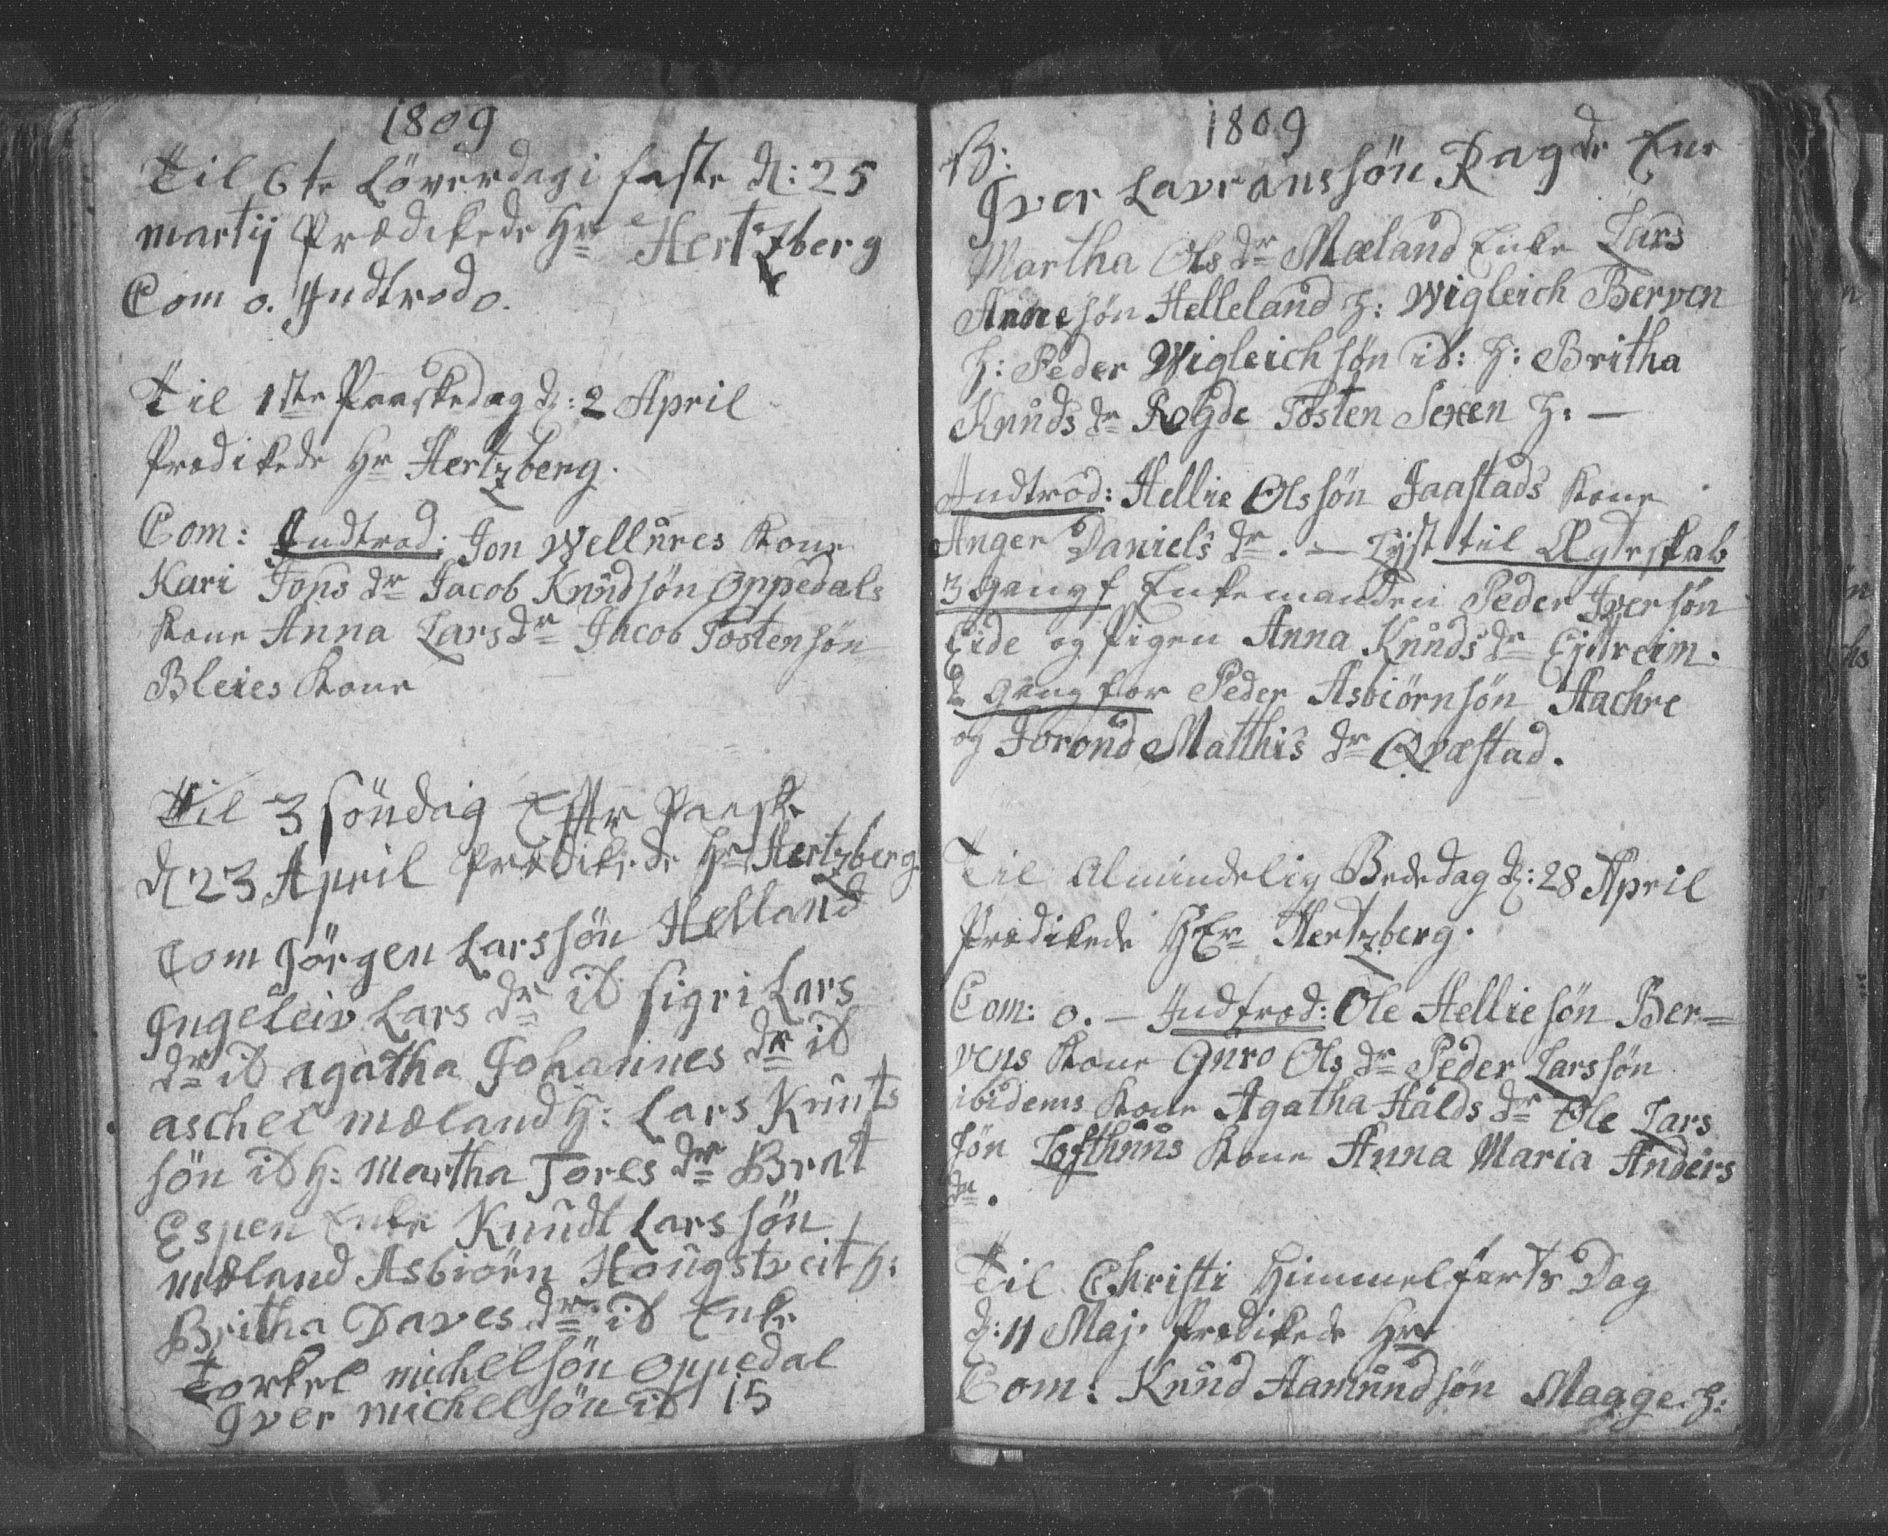 1809
Til 6te Löverdag i faste d: 25
martij Prædikede Hr Hertzberg
Com o. Indtrod o.
Til 1ste Paaskedag d: 2 April
Prædikede Hr Hertzberg.
Com: Indtrod: Jon Wellures Kone
Kari Jons dr Jacob Knudsön Oppedals
Kone Anna Lars dr Jacob Tostensön
Bleies Kone
Til 3 söndag Efter Paaske
d 23 April Prædikede Hr Hertzberg
Com Jörgen Larssön Helland
Ingeleiv Lars dr ib sigri Lars
dr ib agatha Johannes dr ib
aschel mæland H: Lars Knuts
sön ib H: martha Tores dr Brat
Espen Enke Knudt Larssön
mæland Asbiörn Hougstveit h:
Britha Daves dr ib Enke
Torkel michelsön Oppedal
Iver michelsön ib 15
1809
Iver Lavranssön Ragde Enke
Martha Ols dr Mæland Enke Lars
Annesön Helleland h: Wigleich Berven
h: Peder Wigleichsøn ib: h: Britha
Knuds dr Rogde Tosten Sexen h: —
Indtrod: Hellie Olssön Jaastads Kone
Anger Daniels dr. — Lyst til Ægteskab
3 gang f Enkemanden Peder Iversön
Eide og Pigen Anna Knuds dr Eitreim.
2 gang for Peder Asbiörnsön Aachre
og Jorond Matthis dr Qvæstad.
Til Almindelig Bededag d: 28 April
Prædikede HEr Hertzberg.
Com: o. — Indtrod: Ole Helliesön Ber=
vens Kone Guro Ols dr Peder Larssön
ibidems Kone Agatha Halds dr Ole Lars
sön Lofthuus Kone Anna Maria Anders
dr.
Til Christi Himmelfarts Dag
d: 11 Maj. Prædikede Hr
Com: Knud Aamundsön Maage. h: